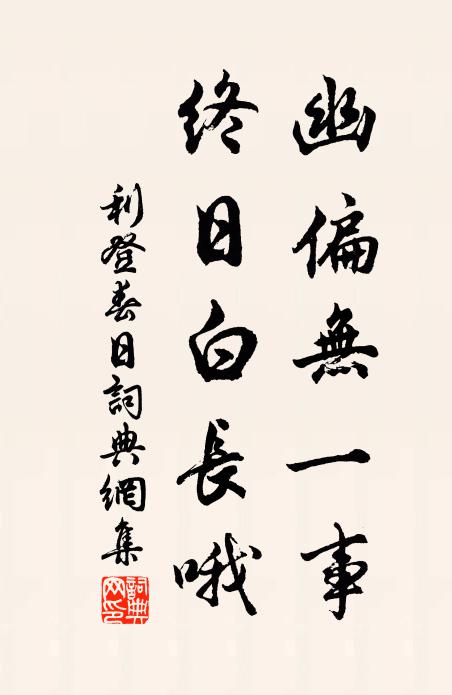 幽偏無一事
終日白長哦
利登春日詞典網集
詞典网印